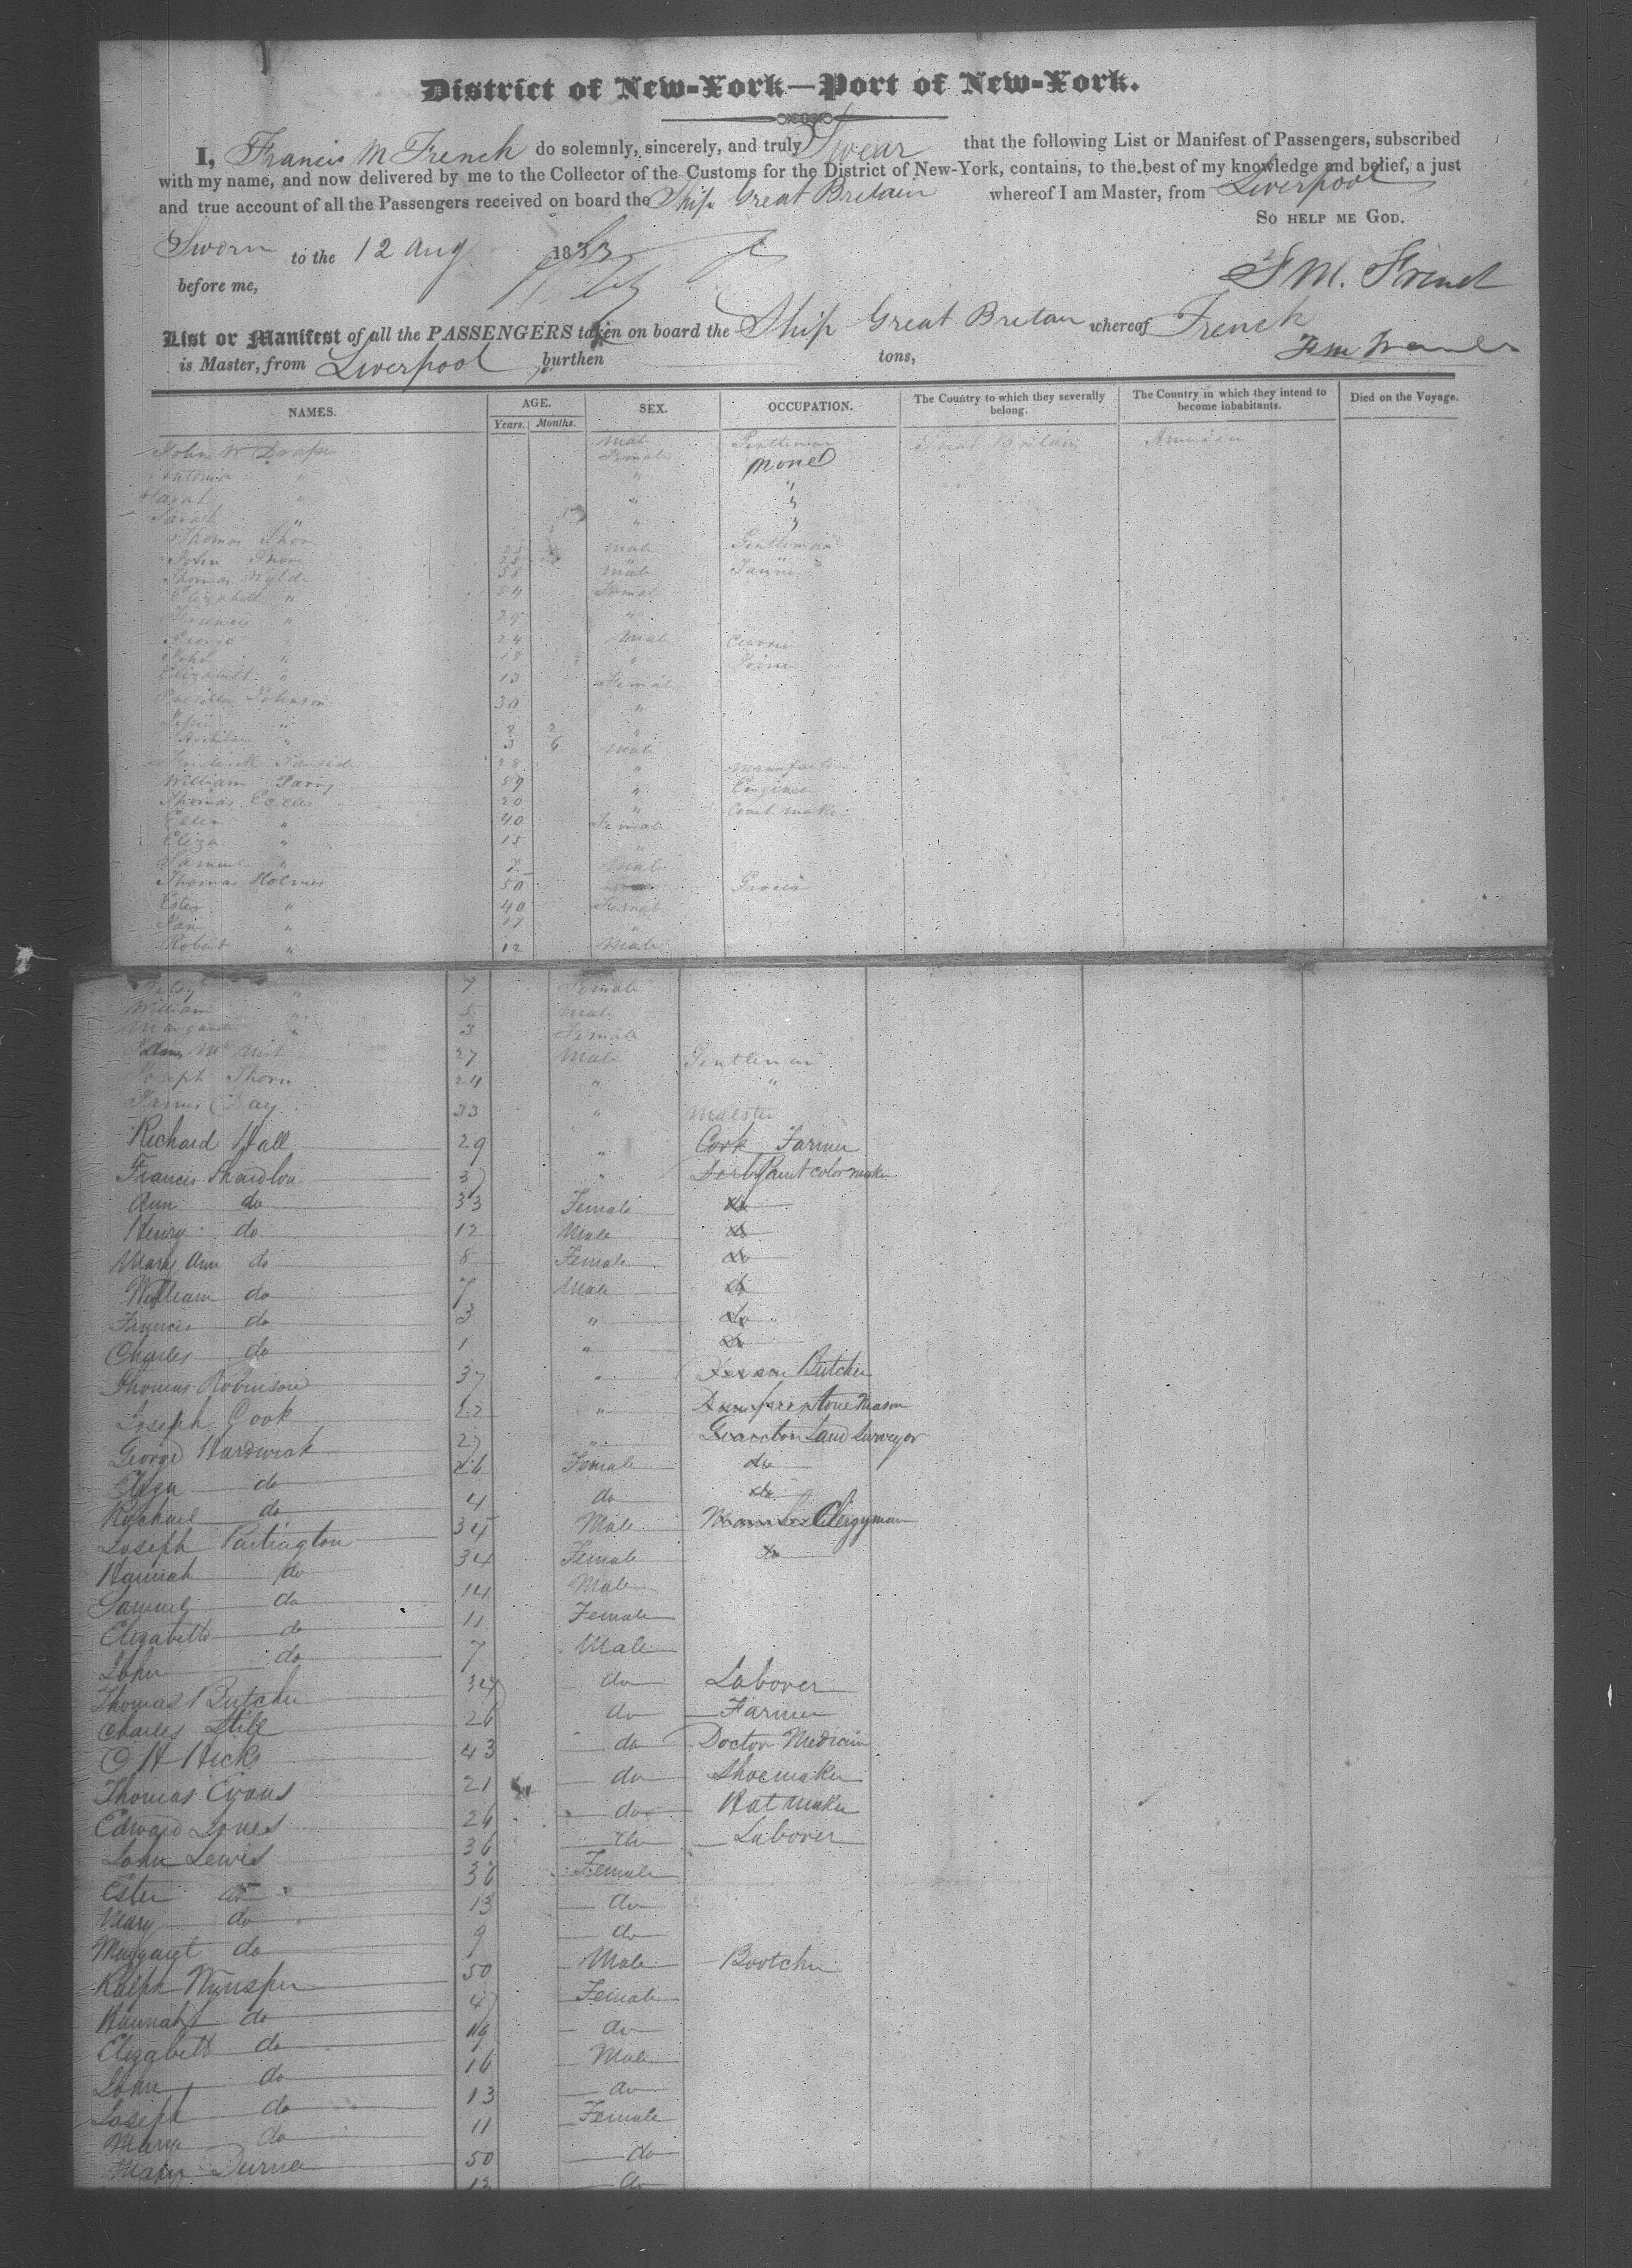 District of New-York—Port of New-York.
I, Francis M French do solemnly, sincerely, and truly Swear that the following List or Manifest of Passengers, subscribed
with my name, and now delivered by me to the Collector of the Customs for the District of New-York, contains, to the best of my knowledge and belief, a just
and true account of all the Passengers received on board the Ship Great Britain whereof I am Master, from Liverpool
So help me God.
Sworn to the 12 Aug 1833
before me,
F M. French
List or Manifest of all the PASSENGERS taken on board the Ship Great Britan whereof French
is Master, from Liverpool burthen tons,
NAMES. AGE. SEX. OCCUPATION. The Country to which they severally belong. The Country in which they intend to become inhabitants. Died on the Voyage.
Years. Months.
John W Draper Male Gentleman Great Britain America
" Female None
Sarah " " "
Sarah " " "
Thomas Male Gentleman
John
Thomas Wylde 55 Male
Elizabeth " 54 Female
" 29 "
George " 24 Male
John " 18 "
Elizabeth " 13 Female
Johnson 30 "
" 8 2 "
" 3 6 Male
Frederick 28 " Manufacturer
William Parry 59 " Engineer
Thomas Eccles 20 " Coat maker
Ellen " 40 Female
Eliza " 15 "
Samuel " 7 Male
Thomas Holmes 50 Grocer
Ester " 40 Female
" 17
Robert " 12 Male
Betsy " 7 Female
William " 5 Male
Margaret " 3 Female
27 Male Gentleman
Joseph Thorn 24 " "
James Day 33 " Malster
Richard Hall 29 " Cork Farmer
Francis 37 " Derby Paint color maker
Ann do 33 Female do
Henry do 12 Male do
Mary Ann do 8 Female do
William do 7 Male do
Francis do 3 " do
Charles do 1 " do
Thomas Robinson 37 " Butcher
Joseph Cook 22 " Stone Mason
George Hardwick 27 " Land Surveyor
Eliza do 26 Female do
Rachael do 4 do do
Joseph Partington 34 Male Clergyman
Hannah do 34 Female do
Samuel do 14 Male
Elizabeth do 11 Female
John do 7 Male
Thomas Butcher 34 do Laborer
Charles Still 26 do Farmer
C H Hicks 43 do Doctor Medicin
Thomas Evans 21 do Shoemaker
Edward Jones 26 do Hat maker
John Lewis 36 do Laborer
Ester do 36 Female
Mary do 13 do
Margaret do 9 do
Ralph 50 Male Bootcher
Hannah do 47 Female
Elizabeth do 19 do
John do 16 Male
Joseph do 13 do
Mary do 11 Female
Mary 50 do
12 do